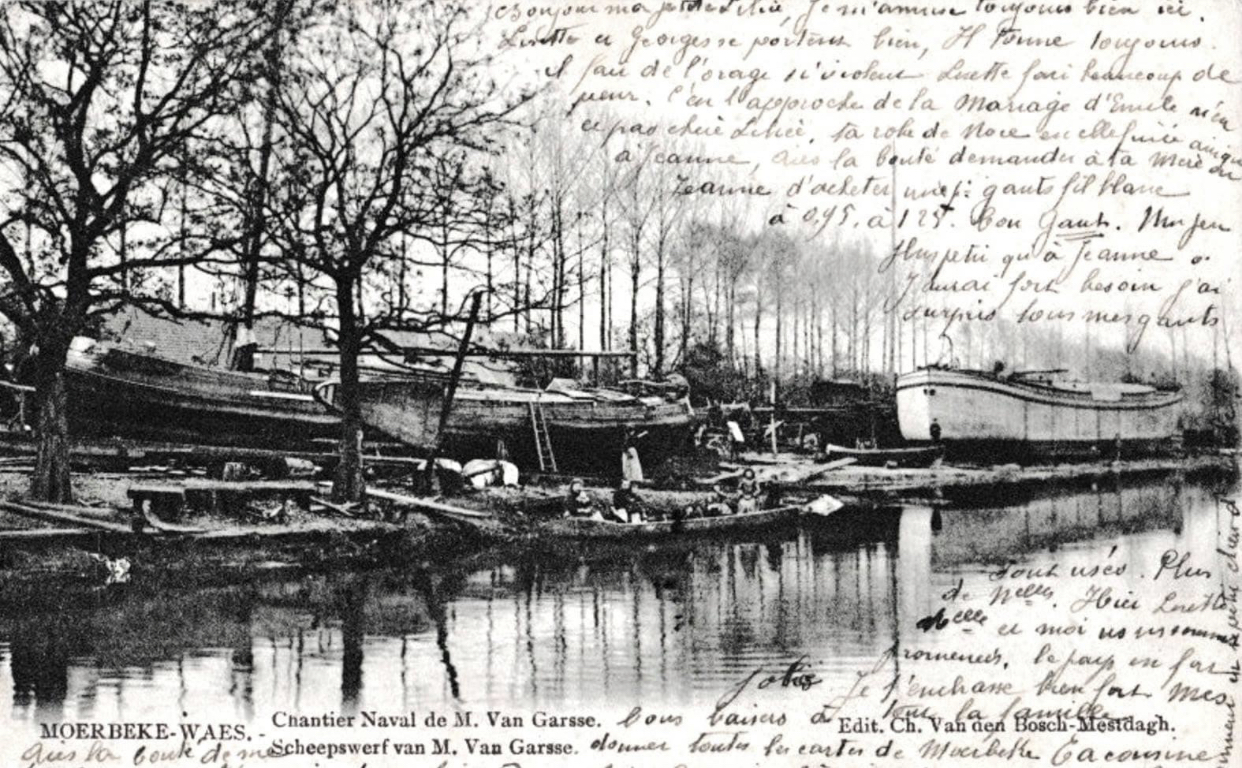 Bonjour ma petite Lilié, Je m'amuse toujours bien ici.
Lisette et Georges se portent bien, Il tonne toujours.
il fait de l'orage si violent Lisette fait beaucoup de
peur. C'est l'approche de la Mariage d'Emile n'es
ce pas cheré Lilié, ta robe de Noce est elle finie ainsi que
à Jeanne, aies la bonté demander à ta Mère ou
Jeanne d'acheter une p: gants fil blanc
à 0,95. à 1 25f. bon gant. Un peu
plus petit qu'à Jeanne
J'aurai fort besoin j'ai
surpris tous mes gants
tout usés. Plus
de Nelles. Hier Lisette
Nelle et moi ns ns sommes
promenés, le pays est fort
jolis Je t'embrasse bien fort Mes
bons baisers à tout la famille
MOERBEKE-WAES. - Chantier Naval de M. Van Garsse.
Scheepswerf van M. Van Garsse.
Edit. Ch. Van den Bosch-Mestdagh.
aies la bonté de me donner toutes les cartes de Moerbeke Ta cousine